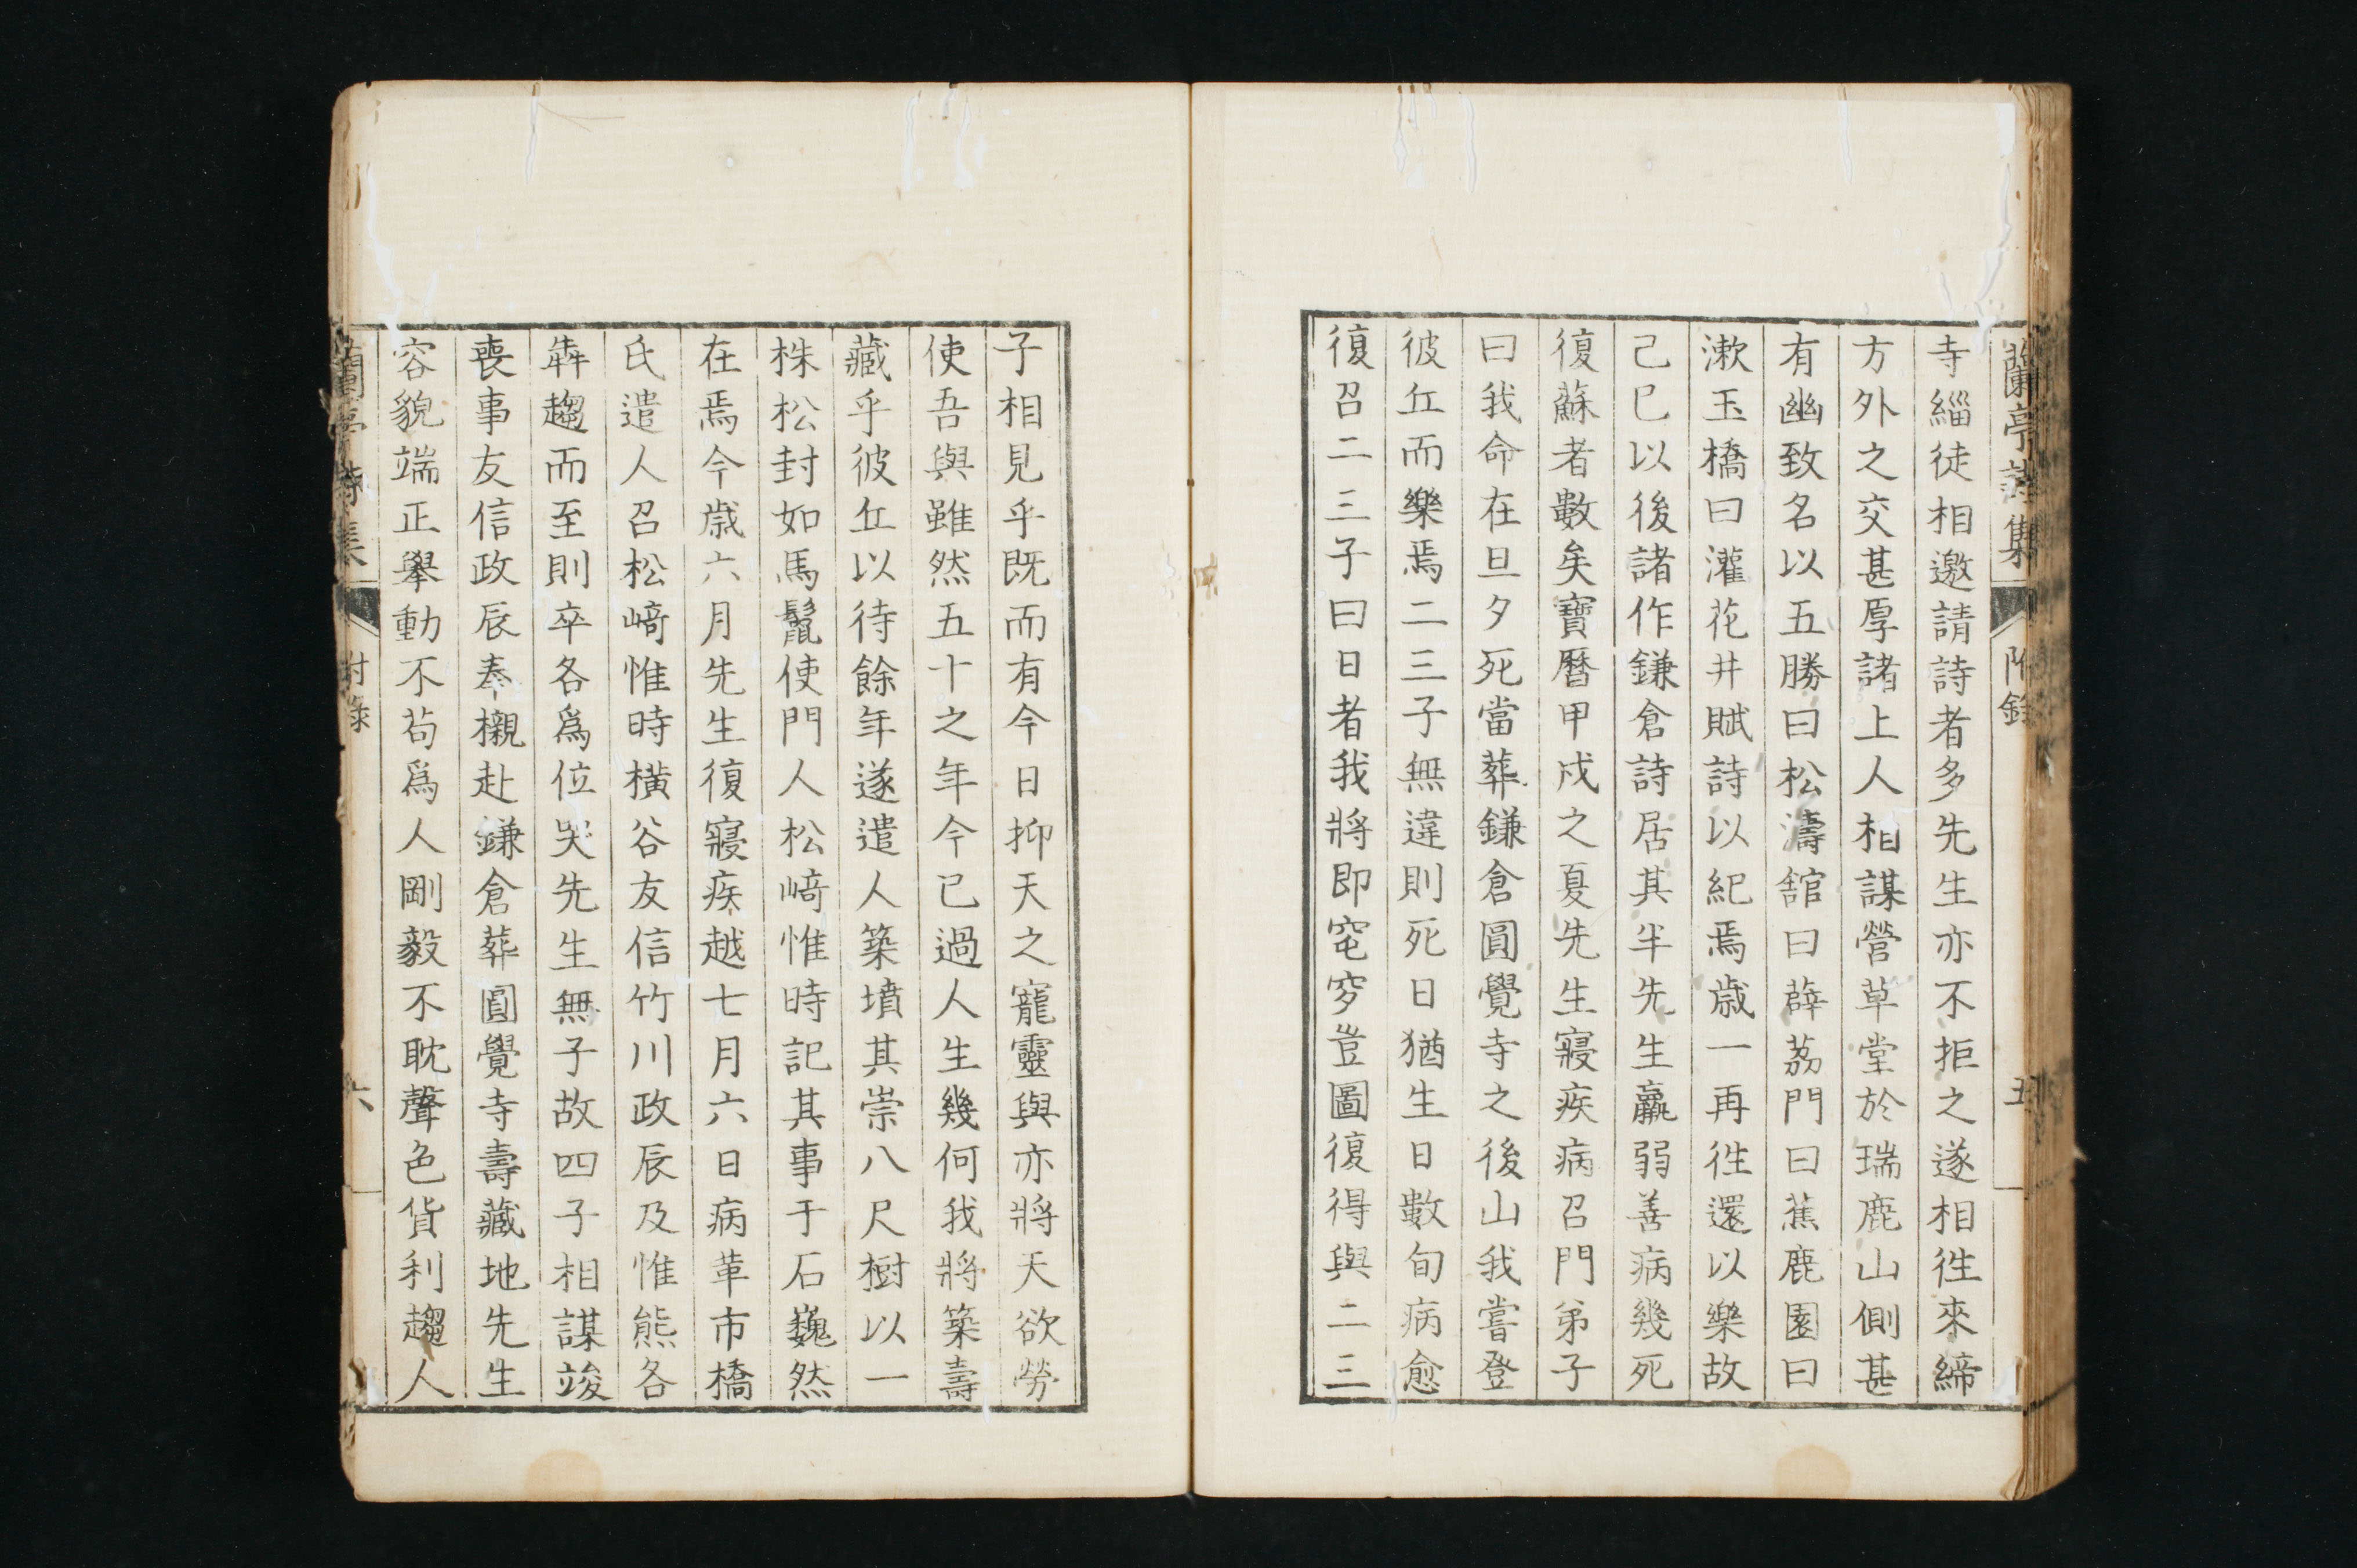 蘭亭詩集 附録 五
寺緇徒相邀請詩者多先生亦不拒之遂相徃來締
方外之交甚厚諸上人相謀營草堂於瑞鹿山側甚
有幽致名以五勝曰松濤舘曰薜荔門曰蕉鹿園曰
漱玉橋曰灌花井賦詩以紀焉歳一再徃還以樂故
己巳以後諸作鎌倉詩居其半先生羸弱善病幾死
復蘇者數矣寶曆甲戌之夏先生寢疾病召門弟子
曰我命在旦夕死當葬鎌倉圓覺寺之後山我嘗登
彼丘而樂焉二三子無違則死日猶生日數旬病愈
復召二三子曰日者我將即窀穸豈圖復得與二三
子相見乎既而有今日抑天之寵靈與亦將天欲勞
使吾與雖然五十之年今已過人生幾何我將築壽
藏乎彼丘以待餘年遂遣人築墳其崇八尺樹以一
株松封如馬鬣使門人松﨑惟時記其事于石巍然
在焉今歳六月先生復寢疾越七月六日病革市橋
氏遣人召松﨑惟時横谷友信竹川政辰及惟熊各
犇趨而至則卒各爲位哭先生無子故四子相謀竣
喪事友信政辰奉櫬赴鎌倉葬圓覺寺壽藏地先生
容貌端正擧動不苟爲人剛毅不耽聲色貨利趨人
蘭亭詩集 附録 六